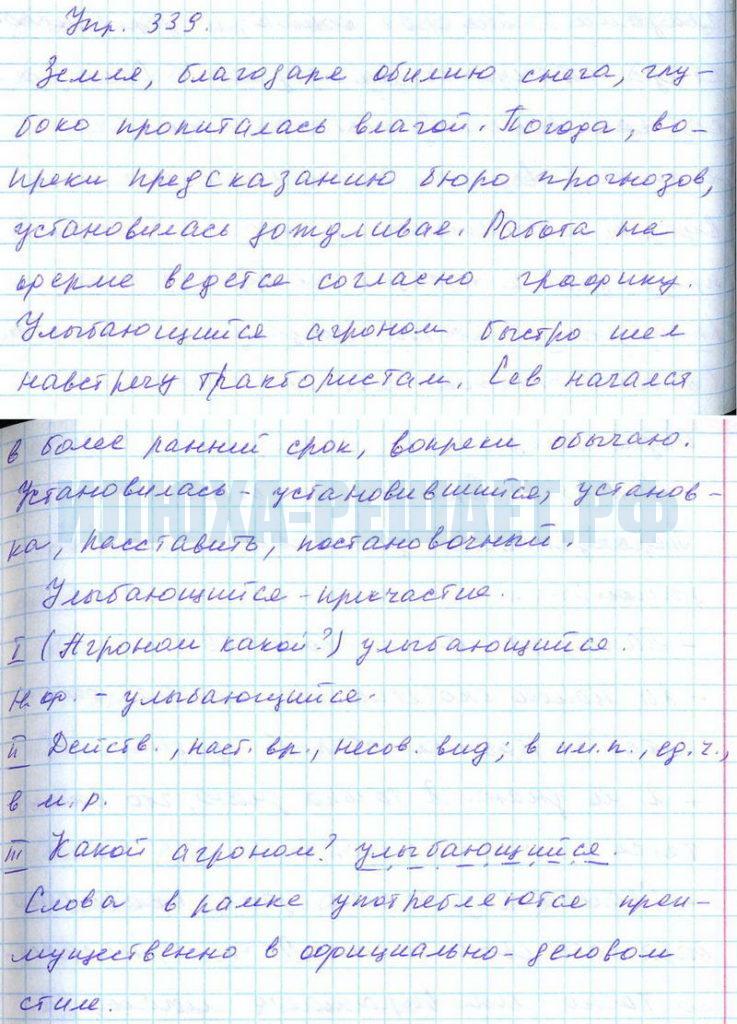 Упр. 339.
Земля, благодаря обилию снега, глу-
боко пропиталась влагой. Погода, во-
преки предсказанию бюро прогнозов,
установилась дождливая. Работа на
ферме ведется согласно графику.
Улыбающийся агроном быстро шел
навстречу трактористам. Сев начался
в более ранний срок, вопреки обычаю.
Установилась - установившийся, установ-
ка, расставить, постановочный.
ИЛЮХА-РЕШАЕТ.РФ
Улыбающийся - причастие.
I (Агроном какой?) улыбающийся.
Н.ф. - улыбающийся.
II Действ., наст. вр., несов. вид; в им.п., ед.ч.,
в м.р.
III Какой агроном? улыбающийся.
Слова в рамке употребляются преи-
мущественно в официально-деловом
стиле.